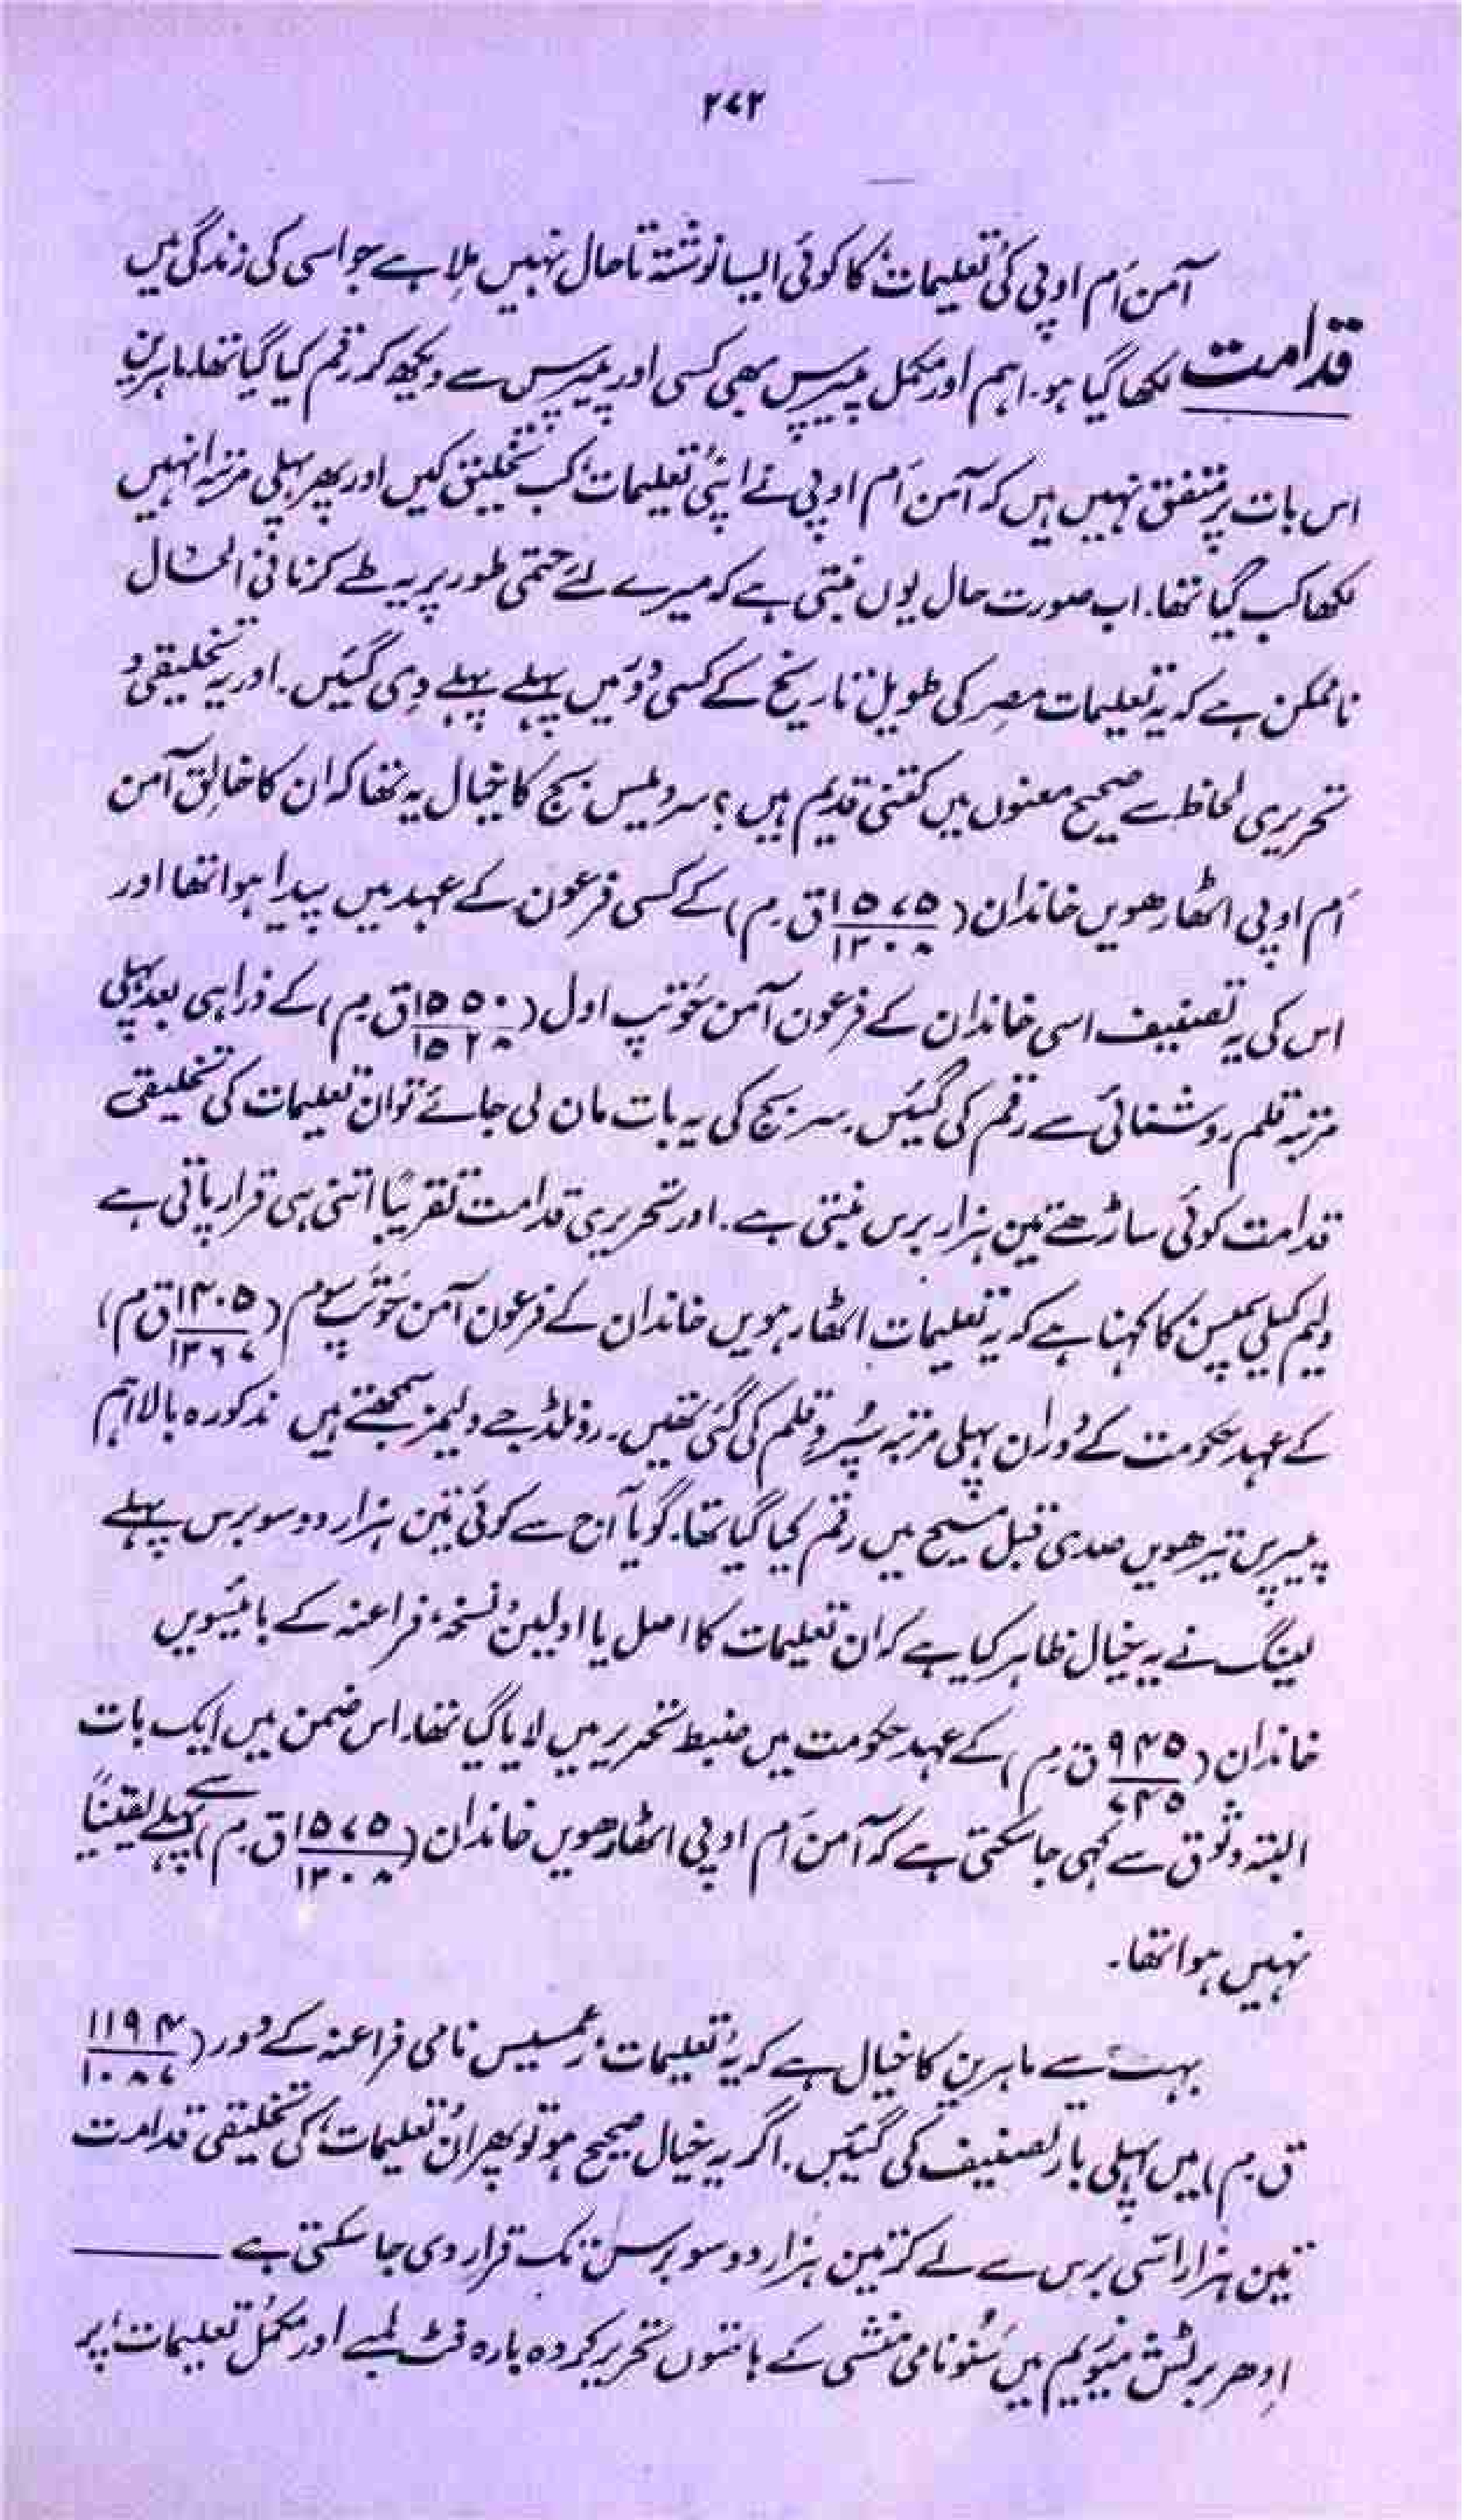 ۲۷۲
آمن اَم اوپی کی ’تعلیمات‘ کا کوئی ایسا نوشتہ تا حال نہیں مِلا ہے جو اسی کی زندگی میں
قدامت لکھا گیا ہو۔ اہم اور مکمل پیپرس بھی کسی اور پیپرس سے دیکھ کر رقم کیا گیا تھا۔ ماہرین
اس بات پر متفق نہیں ہیں کہ آمن اَم اوپی نے اپنی ’تعلیمات‘ کب تخلیق کیں اور پھر پہلی مرتبہ انہیں
لکھا کب گیا تھا۔ اب صورت حال یوں بنتی ہے کہ میرے لئے حتمی طور پر یہ طے کرنا فی الحال
ناممکن ہے کہ یہ تعلیمات مصر کی طویل تاریخ کے کسی دَور میں پہلے پہلے دی گئیں۔ اور یہ تخلیقی و
تحریری لحاظ سے صحیح معنوں میں کتنی قدیم ہیں؟ سر ویلس بج کا خیال یہ تھا کہ ان کا خالق آمن
اَم اوپی اٹھارھویں خاندان (۱۵۷۵/۱۳۰۸ ق۔م) کے کسی فرعون کے عہد میں پیدا ہوا تھا اور
اس کی یہ تصنیف اسی خاندان کے فرعون آمن حُوتپ اول (۱۵۵۰/۱۵۲۸ ق۔م) کے ذرا ہی بعد پہلی
مرتبہ قلم روشنائی سے رقم کی گئیں۔ سر بج کی یہ بات مان لی جائے تو ان تعلیمات کی تخلیقی
قدامت کوئی ساڑھے تین ہزار برس بنتی ہے۔ اور تحریری قدامت تقریباً اتنی ہی قرار پاتی ہے
ولیم کیلی سمپسن کا کہنا ہے کہ یہ تعلیمات اٹھارہویں خاندان کے فرعون آمن حُوتَپ سوم (۱۴۰۵/۱۳۶۷ ق م)
کے عہد حکومت کے دَوران پہلی مرتبہ سُپردِ قلم کی گئی تھیں۔ رونلڈ جے ولیمز سمجھتے ہیں مذکورہ بالا اہم
پیپرس تیرھویں صدی قبل مسیح میں رقم کیا گیا تھا۔ گویا آج سے کوئی تین ہزار دو سو برس پہلے
لینگ نے یہ خیال ظاہر کیا ہے کہ ان تعلیمات کا اصل یا اولین نسخہ، فراعنہ کے بائیسویں
خاندان (۹۴۵/۷۴۵ ق۔م) کے عہد حکومت میں ضبط تحریر میں لایا گیا تھا۔ اس ضمن میں ایک بات
البتہ وثوق سے کہی جا سکتی ہے کہ آمن اَم اوپی اٹھارھویں خاندان (۱۵۷۵/۱۳۰۸ ق۔م) سے پہلے یقیناً
نہیں ہوا تھا۔
بہت سے ماہرین کا خیال ہے کہ یہ ’تعلیمات‘ رعمسیس نامی فراعنہ کے دور (۱۱۹۴/۱۰۸۷
ق۔م) میں پہلی بار تصنیف کی گئیں۔ اگر یہ خیال صحیح ہو تو پھر ان ’تعلیمات‘ کی تخلیقی قدامت
تین ہزار اسّی برس سے لے کر تین ہزار دو سو برس تک قرار دی جا سکتی ہے ——
اِدھر برٹش میوزیم میں سُنُو نامی منشی کے ہاتھوں تحریر کردہ بارہ فٹ لمبے اور مکمل ’تعلیمات‘ پر